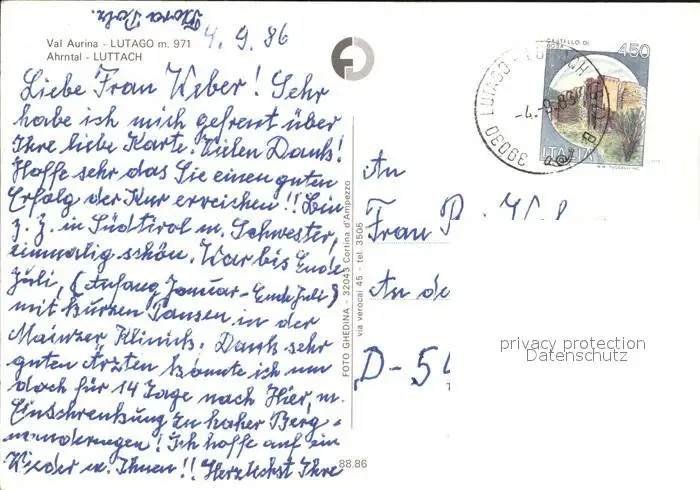 Flora Polz.
4.9.86
Val Aurina - LUTAGO m. 971
Ahrntal - LUTTACH
Liebe Frau Weber! Sehr
habe ich mich gefreut über
Ihre liebe Karte. Vielen Dank!
Hoffe sehr das Sie einen guten
Erfolg der Kur erreichen!! Bin
z. Z. in Südtirol m. Schwester,
einmalig schön. War bis Ende
Juli, (Anfang Januar - Ende Juli)
mit kurzen Pausen in der
Mainzer Klinik. Dank sehr
guten Ärzten konnte ich nun
doch für 14 Tage nach Hier, m.
Einschrenkung zu hoher Berg=
wanderungen! Ich hoffe auf ein
Wieder m. Ihnen!! Herzlichst Ihre
FOTO GHEDINA - 32043 Cortina d'Ampezzo
via verocai 45 - tel. 3505
88.86
CASTELLO DI
450
ITALIA
39030 LUTAGO - LUTTACH
-4.-9.86
An
Frau
An
D-54
privacy protection
Datenschutz